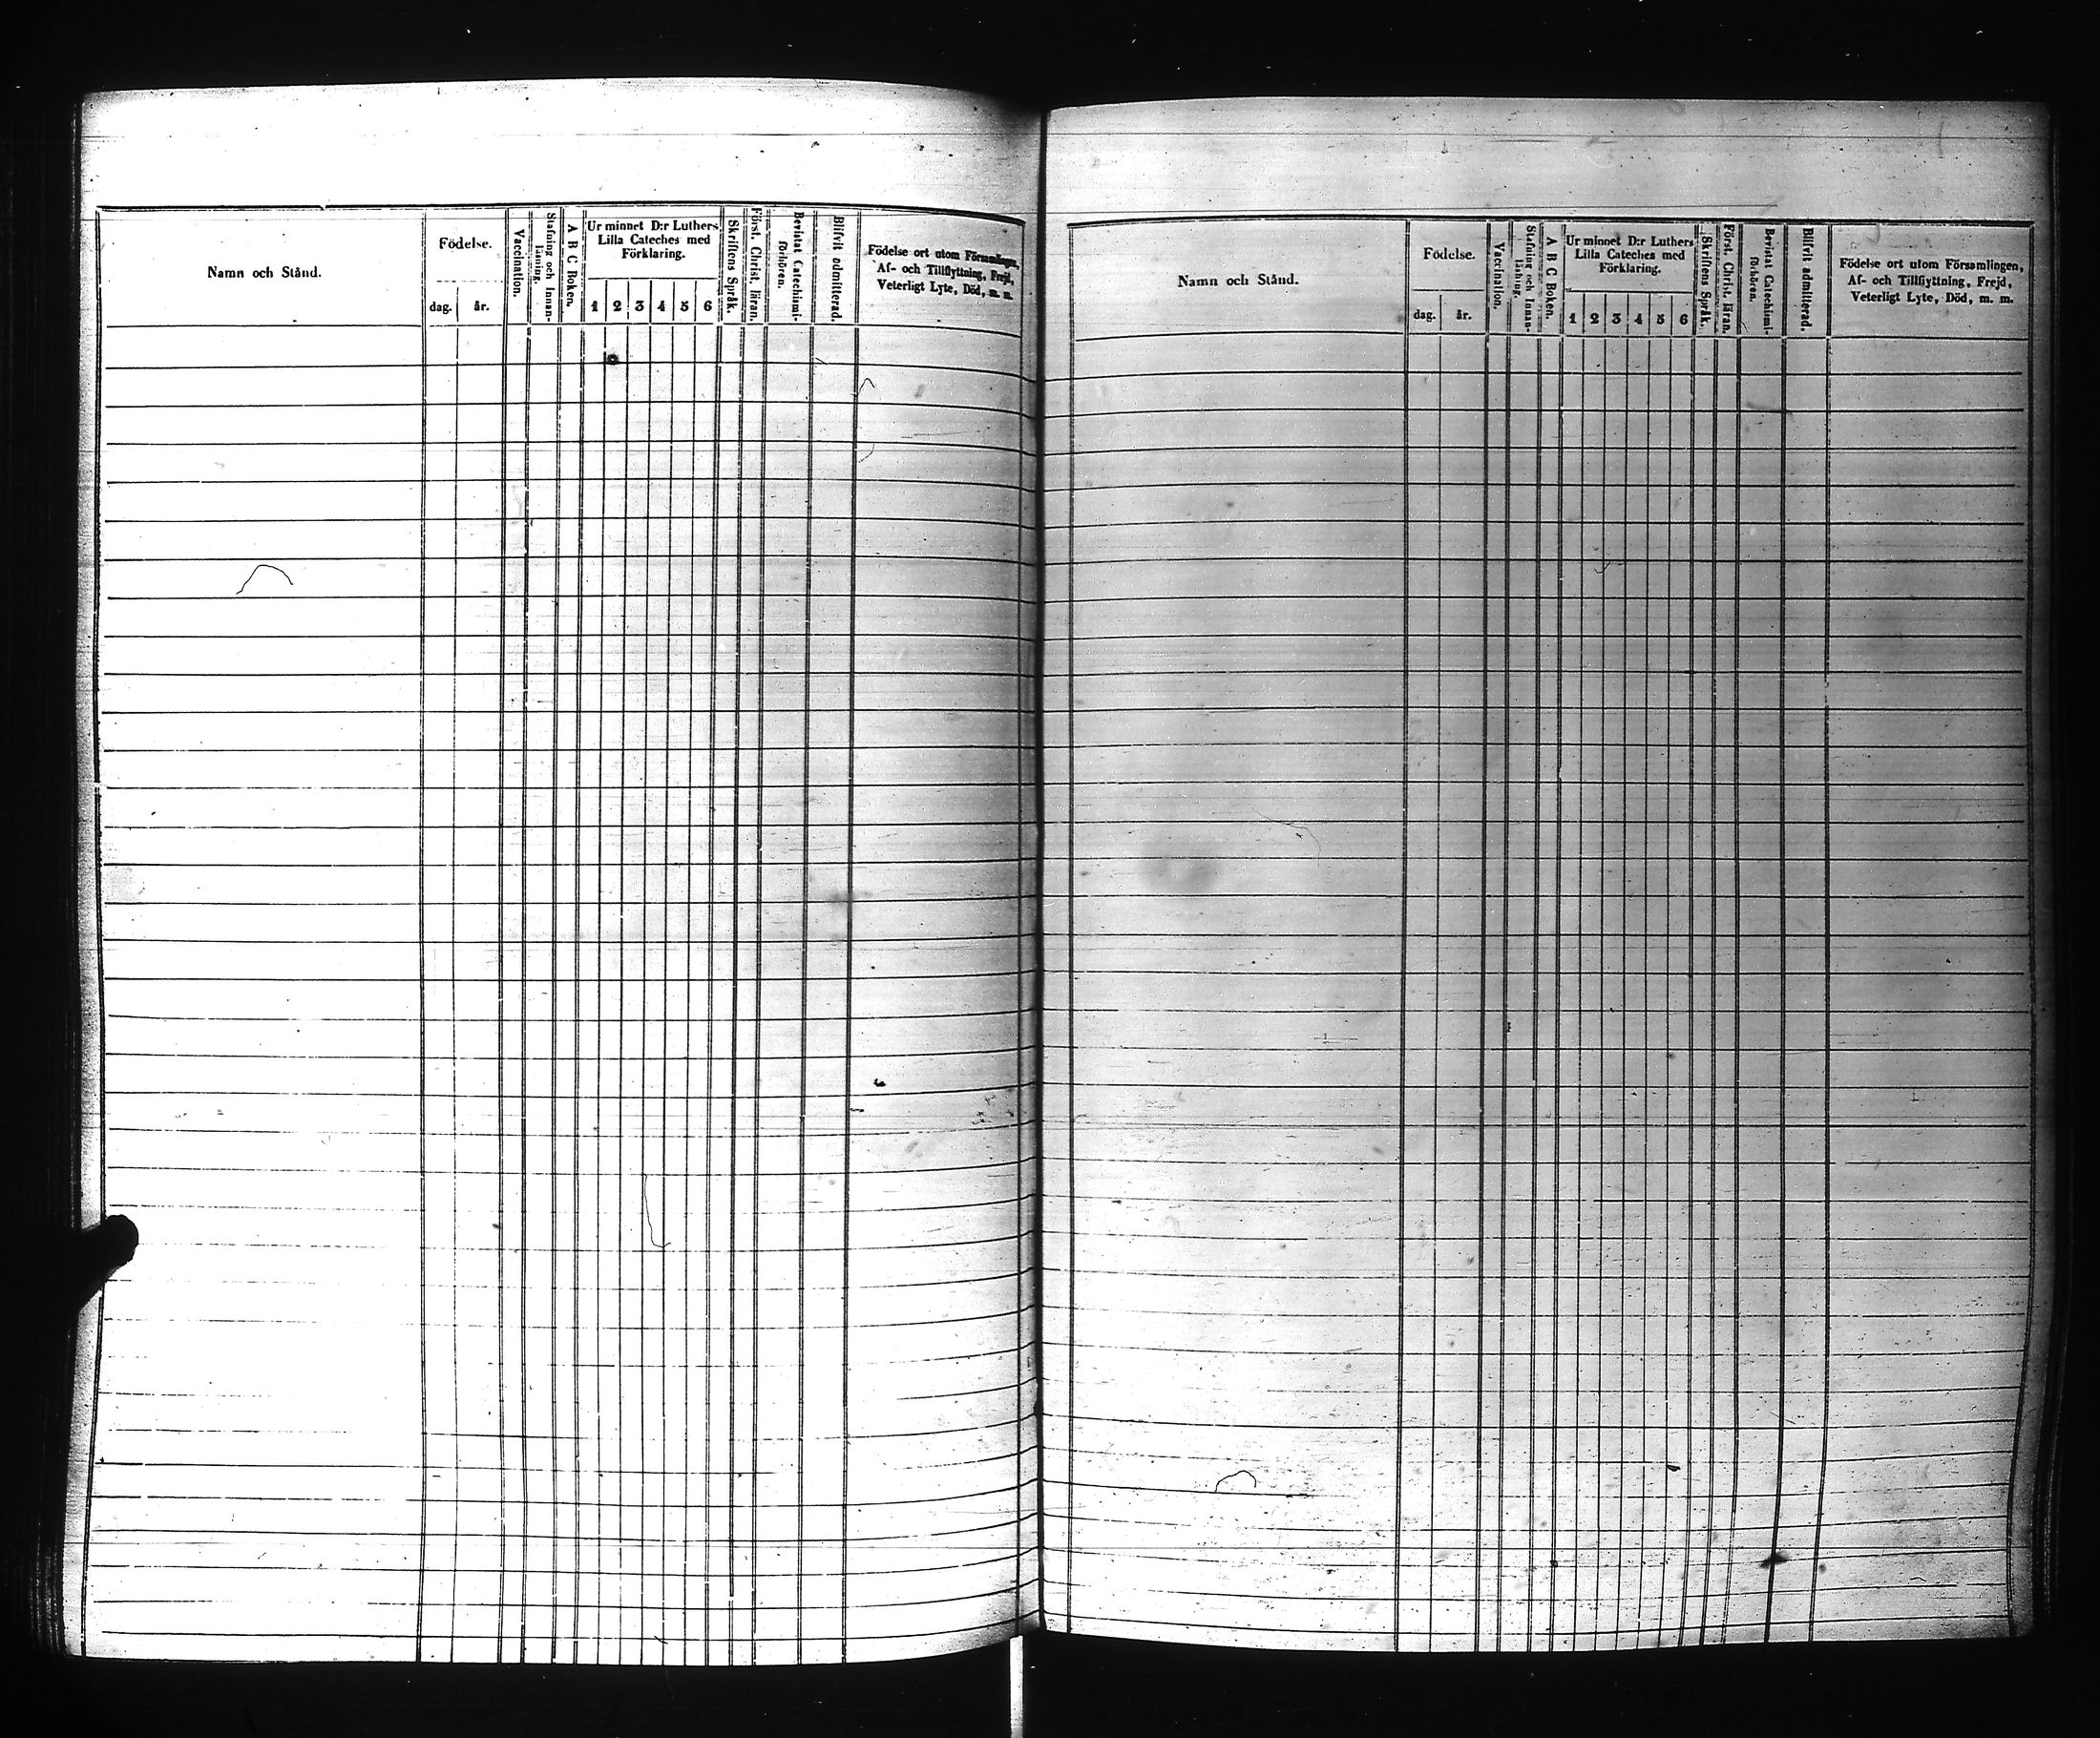 Namn och Stånd.
Födelse.
dag. år.
Vaccination.
Stafning och Innan-
läsning.
A B C Boken.
Ur minnet D:r Luthers
Lilla Cateches med
Förklaring.
1 2 3 4 5 6
Skriftens Språk.
Först. Christ. läran.
Bevistat Catechismi-
förhören.
Blifvit admitterad.
Födelse ort utom Församlingen,
Af- och Tillflyttning, Frejd,
Veterligt Lyte, Död, m. m.
Namn och Stånd.
Födelse.
dag. år.
Vaccination.
Stafning och Innan-
läsning.
A B C Boken.
Ur minnet D:r Luthers
Lilla Cateches med
Förklaring.
1 2 3 4 5 6
Skriftens Språk.
Först. Christ. läran.
Bevistat Catechismi-
förhören.
Blifvit admitterad.
Födelse ort utom Församlingen,
Af- och Tillflyttning, Frejd,
Veterligt Lyte, Död, m. m.